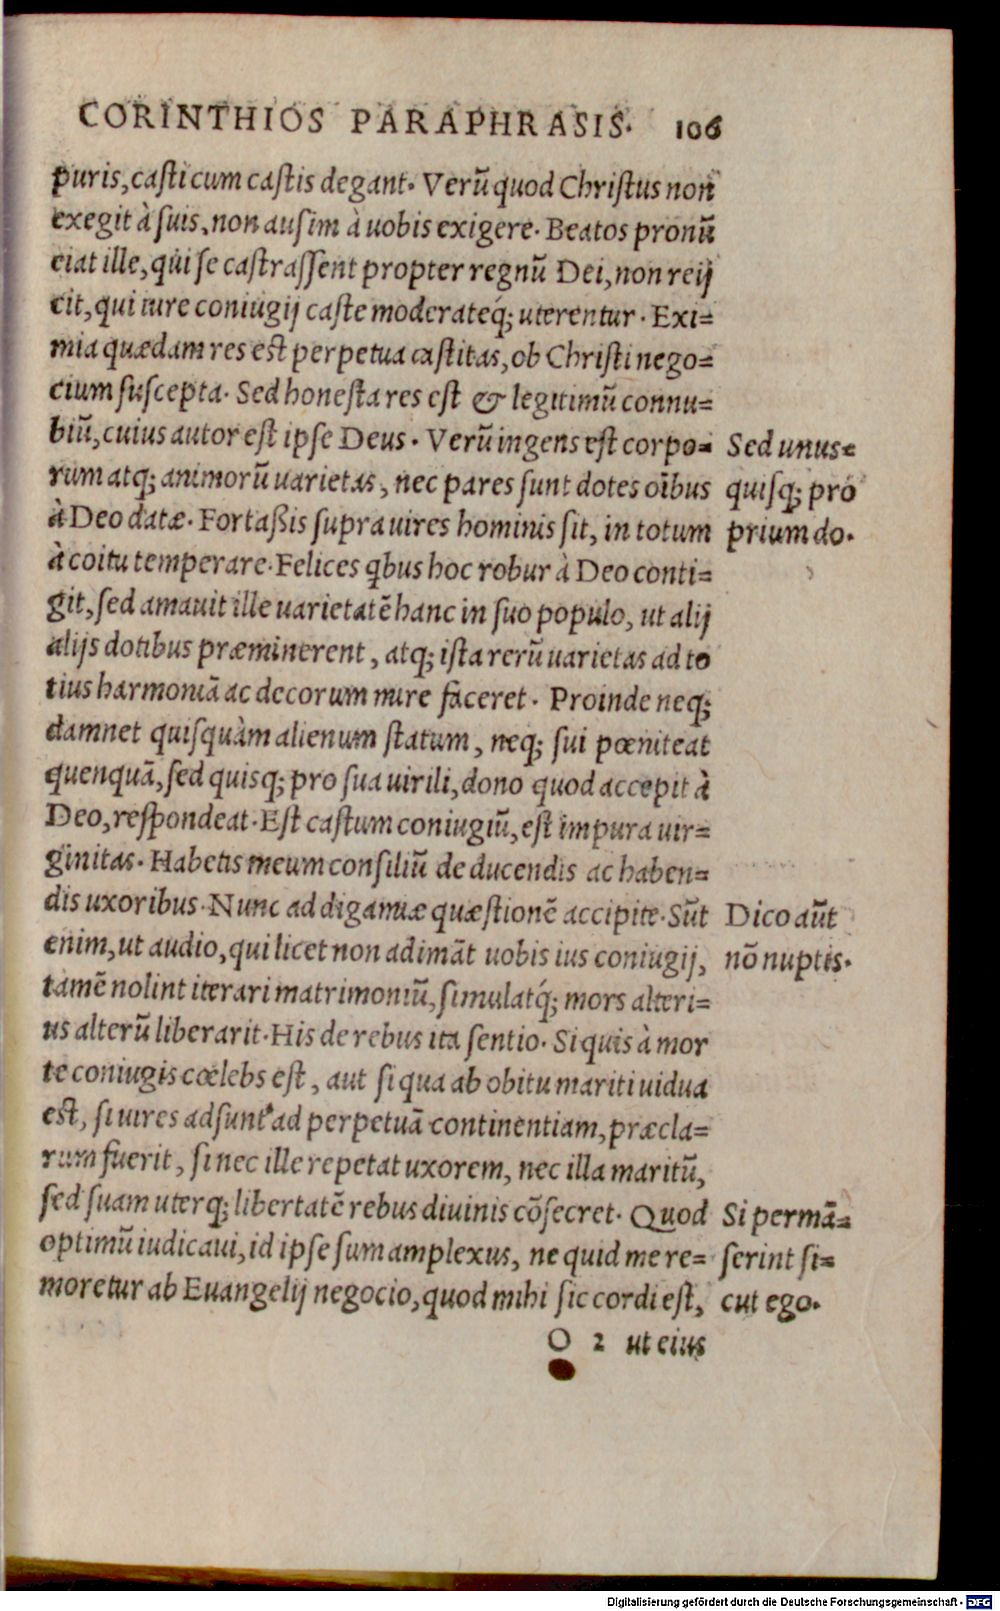 CORINTHIOS PARAPHRASIS. 106
puris, casti cum castis degant. Verũ quod Christus non
exegit à suis, non ausim à uobis exigere. Beatos pronũ
ciat ille, qui se castrassent propter regnũ Dei, non reij
cit, qui iure coniugij caste moderateq́; uterentur. Exi=
mia quædam res est perpetua castitas, ob Christi nego=
cium suscepta. Sed honesta res est & legitimũ connu=
biũ, cuius autor est ipse Deus. Verũ ingens est corpo=
rum atq; animorũ uarietas, nec pares sunt dotes oĩbus
à Deo datæ. Fortaßis supra uires hominis sit, in totum
à coitu temperare. Felices qbus hoc robur à Deo conti=
git, sed amauit ille uarietatẽ hanc in suo populo, ut alij
alijs dotibus præminerent, atq; ista rerũ uarietas ad to
tius harmoniã ac decorum mire faceret. Proinde neq;
damnet quisquàm alienum statum, neq; sui pœniteat
quenquã, sed quisq; pro sua uirili, dono quod accepit à
Deo, respondeat. Est castum coniugiũ, est impura uir=
ginitas. Habetis meum consiliũ de ducendis ac haben=
dis uxoribus. Nunc ad digamiæ quæstionẽ accipite. Sũt
enim, ut audio, qui licet non adimãt uobis ius coniugij,
tamẽ nolint iterari matrimoniũ, simulatq́; mors alteri=
us alterũ liberarit. His de rebus ita sentio. Si quis à mor
te coniugis cœlebs est, aut si qua ab obitu mariti uidua
est, si uires adsunt ad perpetuã continentiam, præcla=
rum fuerit, si nec ille repetat uxorem, nec illa maritũ,
sed suam uterq; libertatẽ rebus diuinis cõsecret. Quod
optimũ iudicaui, id ipse sum amplexus, ne quid me re=
moretur ab Euangelij negocio, quod mihi sic cordi est,
O 2 ut eius
Sed unus=
quisq; pro
prium do.
Dico aũt
nõ nuptis.
Si permã=
serint si=
cut ego.
Digitalisierung gefördert durch die Deutsche Forschungsgemeinschaft - DFG